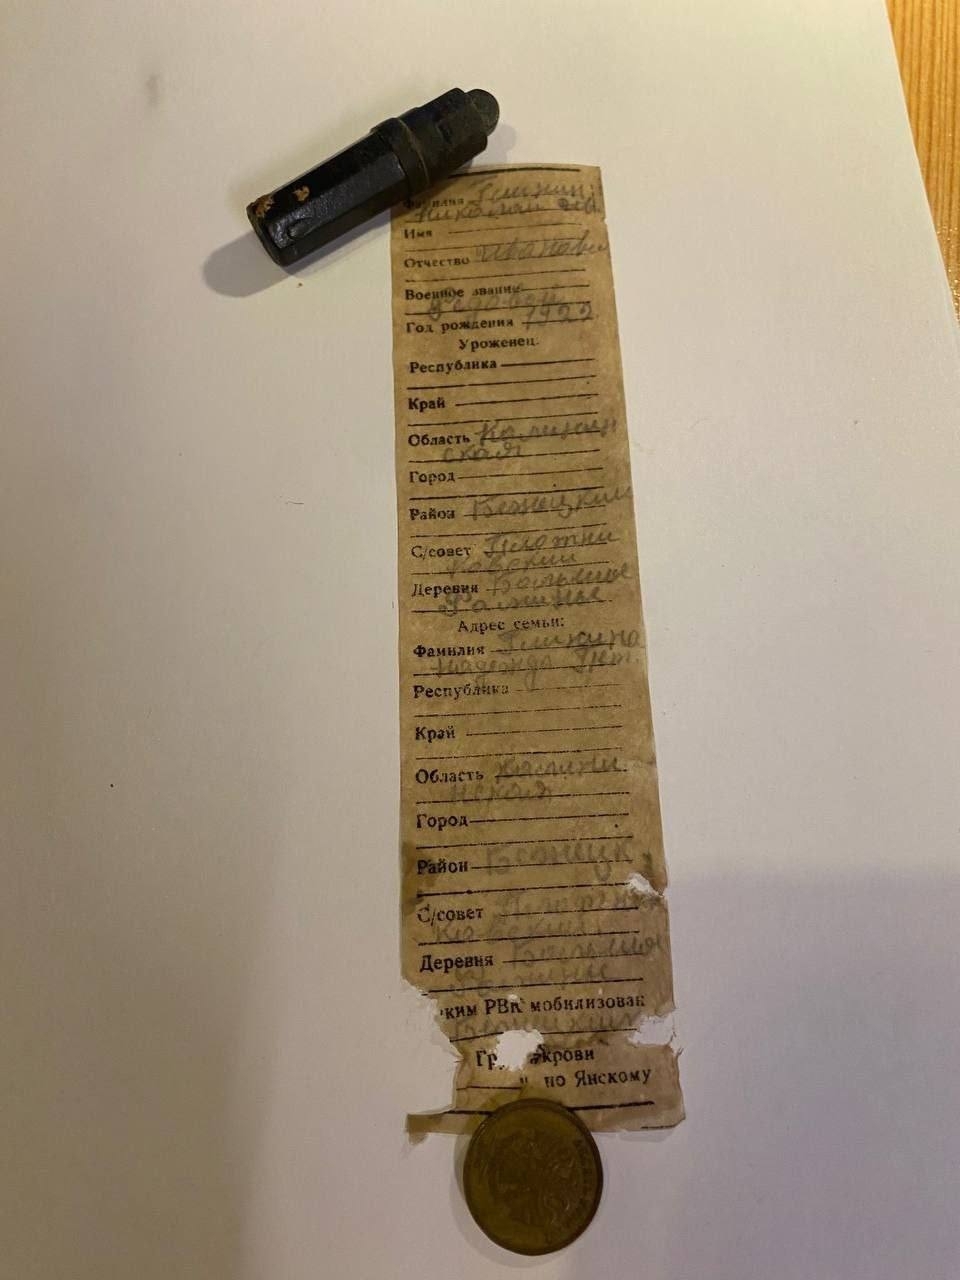 Фамилия Глинкин
Николай
Имя
Отчество Иванович
Военное звание
Рядовой
Год рождения 1922
Уроженец:
Республика
Край
Область Калинин
ская
Город
Район Бежецкий
С/совет Плотни
ковский
Деревня Большие
Адрес семьи:
Фамилия Глинкина
Надежда Пет.
Республика
Край
Область Калини
нская
Город
Район Бежецк
С/совет
ковский
Деревня Большие
ким РВК мобилизован
Бежецким
крови
по Янскому